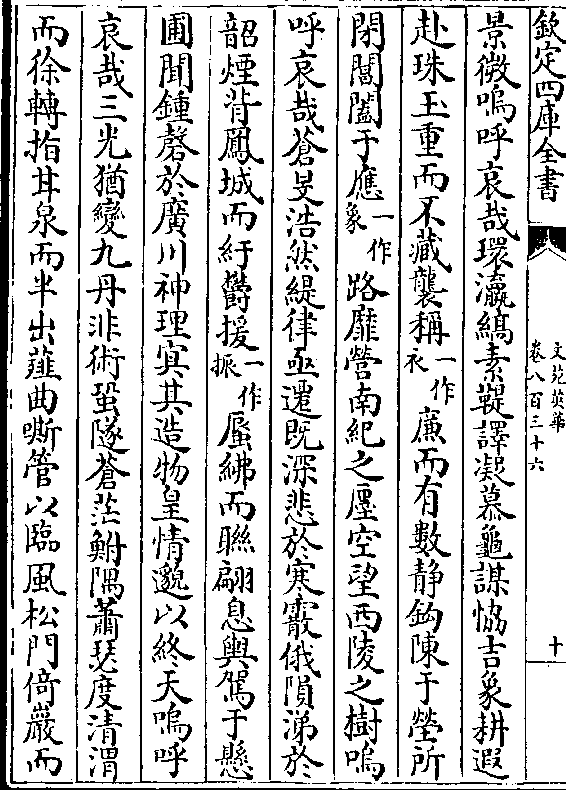 欽定四庫全書
文苑英華
卷八百三十六
十
景微嗚呼哀哉環瀛縞素鞮譯凝慕龜謀恊吉象耕遐
赴珠玉重而不藏襲稱一作衣㢘而有數静鈎陳于塋所
閉閶闔于應一作象路靡營南紀之㕓空望西陵之樹嗚
呼哀哉蒼旻浩然緹律亟遷既深悲於寒霰俄隕涕於
韶煙背鳳城而紆欝援一作振蜃紼而聨翩息輿駕于懸
圃聞鍾磬於廣川神理寘其造物皇情邈以終天嗚呼
哀哉三光猶變九丹非術蛩隧蒼茫鮒隅蕭瑟度清渭
而徐轉指甘泉而半出薤曲嘶管以臨風松門倚巖而